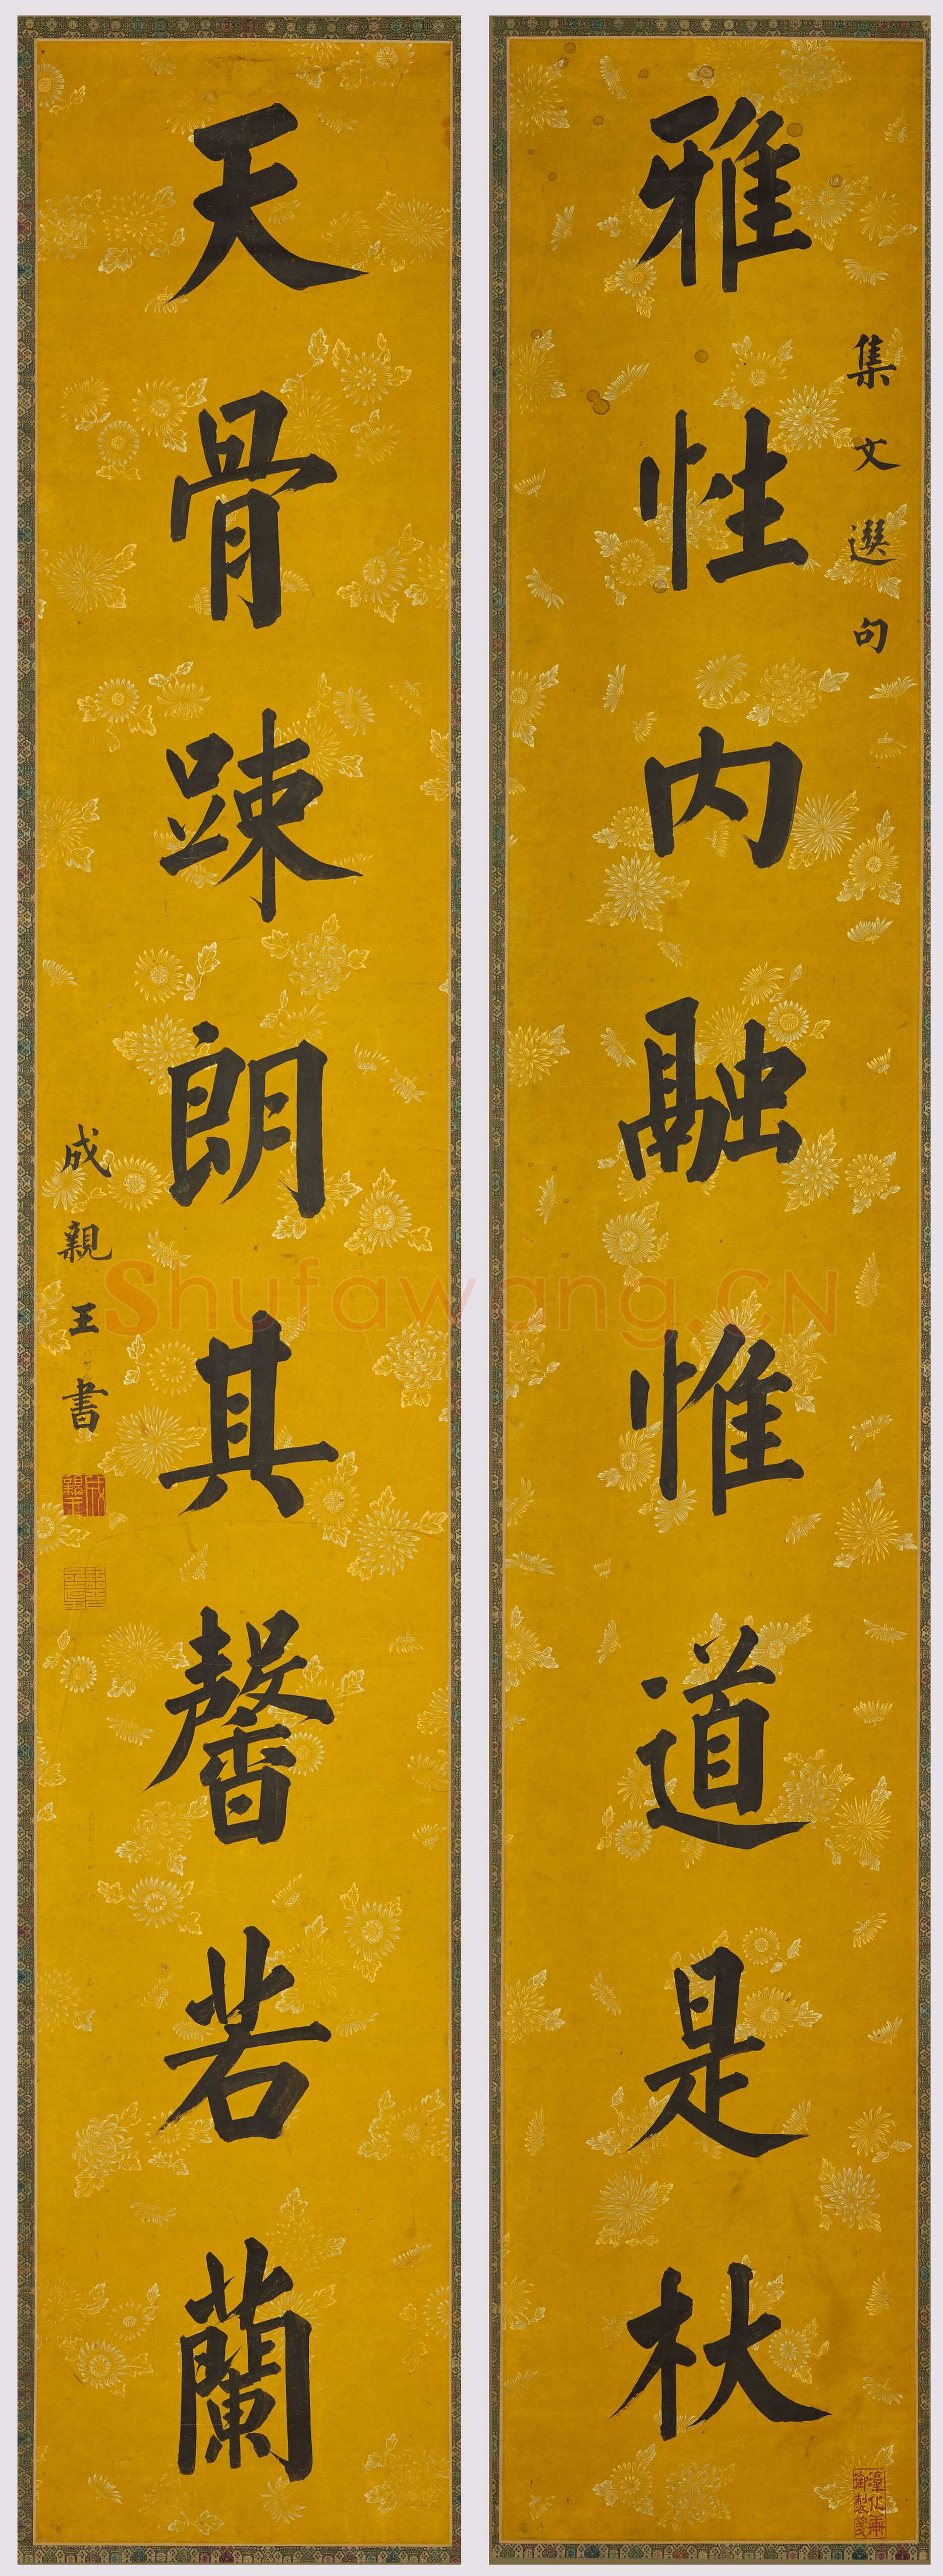 雅性内融惟道是杕
集文選句
天骨踈朗其馨若蘭
成親王書
成親王
Shufawang.CN